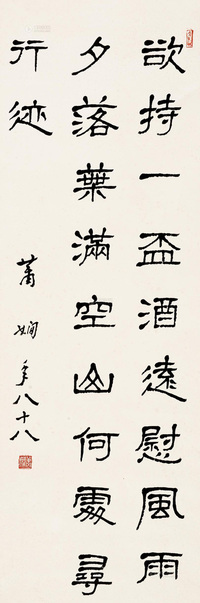 欲持一盃酒遠慰風雨
夕落葉滿空山何處尋
行迹
蕭嫻年八十八